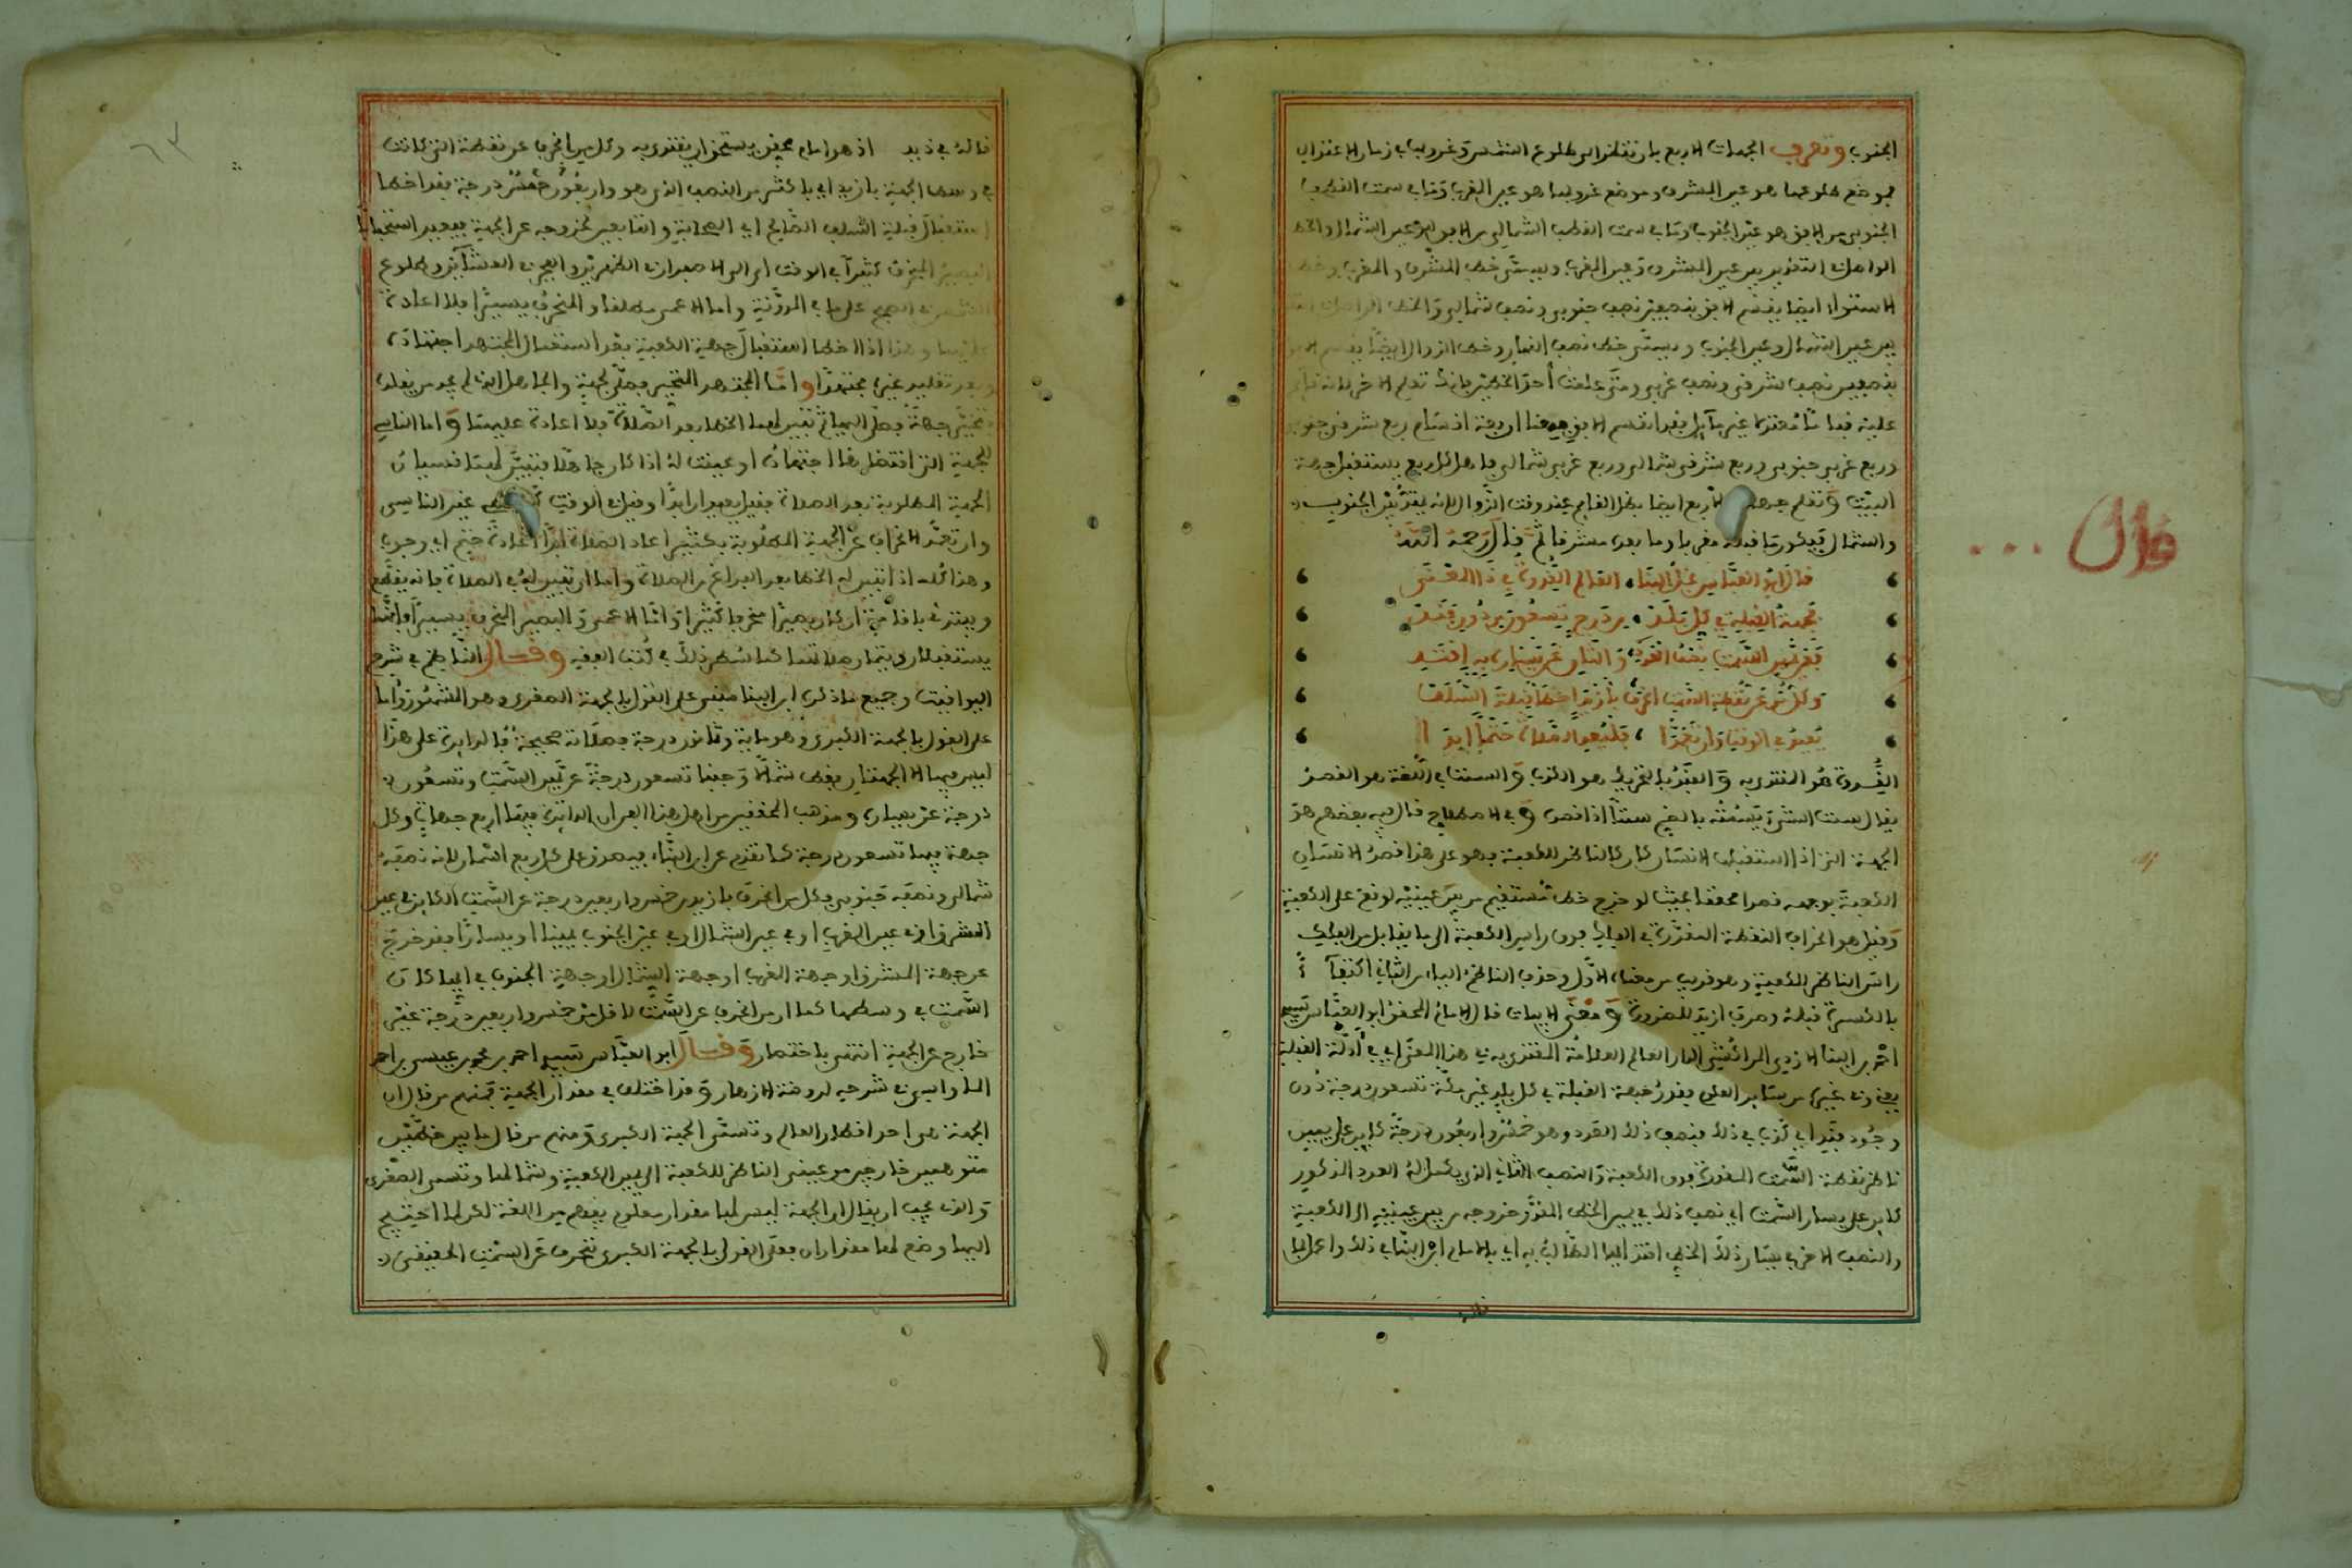 الجنوب وتعرف الجهات الاربع بان تنظر الى طلوع الشمس وغروبها في زمان الاعتدال
فموضع طلوعها هو عين المشرق وموضع غروبها هو عين المغرب وما في سمت القطب
الجنوبي من الافق هو عين الجنوب وما في سمت القطب الشمالي من الافق هو عين الشمال والخط
الواصل بين عين المشرق وعين المغرب ويسمى خط المشرق والمغرب وخط
الاستواء ايضا يقسم الافق بنصفين نصف جنوبي ونصف شمالي والخط الواصل
بين عين الشمال وعين الجنوب ويسمى خط نصف النهار وخط الزوال ايضا يقسم
بنصفين نصف شرقي ونصف غربي ومتى علمت احد الخطين فانك تعلم الاخر لانه قائم
عليه فيها فقد انقسم الافق اربعة اقسام ربع شرقي جنوبي
وربع غربي جنوبي وربع شرقي شمالي وربع غربي شمالي فاهل كل ربع يستقبل جهة
البيت وتعلم جهة الاربع ايضا بظل القائم عند وقت الزوال لانه بين الجنوب
والشمال فيكون ما قبله مغربا وما بعده مشرقا ثم قال رحمه الله
قال ابو العباس نجل البنا القدوة في ذا المعتنى
فجهة القبلة في كل بلد من درج تسعون دون فند
عن يمين السمت نصف العدد والثاني عن يساره به اقتد
وكل من عن نقطة السمت انحرف بازيد اخطا قبلة السلف
يعيد في الوقت وان تعمدا فليعد الصلاة حتما ابدا
القدوة هو المقتدى به والفند بالتحريك هو الكذب والسمت في اللغة هو القصد
يقال سمت الشيء يسمته بالضم سمتا اذا قصد وفي الاصطلاح قال فيه بعضهم هو
الجهة التي اذا استقبلها الانسان كان كالناظر للكعبة وهو على هذا قصد الانسان
الكعبة بوجهه قصدا محققا بحيث لو خرج خط مستقيم من بين عينيه لوقع على الكعبة
وقيل هو انحراف النقطة المقدرة في الفلك فوق راس الكعبة الى ما يقابل من الفلك
راس الناظر للكعبة وهو قريب من معنى الاول وحذف الناظم الياء من الثاني اكتفاء
بالكسرة قبله وصرف ازيد للضرورة ومعنى الابيات قال الامام المحقق ابو العباس سيدي
احمد بن البنا الازدي المراكشي الدار العالم العلامة المقتدى به في هذا المعنى اي في ادلة القبلة
وفي غيره من سائر العلوم قدر جهة القبلة في كل بلد غير مكة تسعون درجة دون
وجود فند اي كذب في ذلك فنصف ذلك القدر وهو خمس واربعون درجة كاين على يمين
ناظر نقطة السمت المقدرة فوق الكعبة والنصف الثاني الذي يكمل له العدد المذكور
كاين على يسار السمت اي نصف ذلك في يمين الخط المقدر خروجه من بين عينيه الى الكعبة
والنصف الاخر في يسار ذلك الخط اقتد ايها الطالب به اي بالامام ابن البنا في ذلك واعمل بما
قاله في ذلك اذ هو امام محقق يستحق ان يقتدى به وكل من انحرف عن نقطة التي كانت
في وسط الجهة بازيد اي باكثر من النصف الذي هو واربعون خمس درجة فقد اخطا
استقبال قبلة السلف الصالح اي الصحابة والتابعين لخروجه عن الجهة فيعيد استحبابا
البصير المنحرف كثيرا في الوقت اي الى الاصفرار في الظهرين والفجر في العشاءين وطلوع
الشمس في الصبح على ما في المدونة واما الاعمى مطلقا والمنحرف يسيرا فلا اعادة
عليهما وهذا اذا اخطا استقبال جهة الكعبة بعد استعمال المجتهد اجتهاده
وبعد تقليد غيره مجتهدا واما المجتهد المتحير فصلى لجهة والجاهل الذي لم يجد من يقلده
فتخير جهة فصلى اليها ثم تبين لهما الخطا بعد الصلاة فلا اعادة عليهما واما الناسي
للجهة التي اقتضاها اجتهاده او عينت له اذا كان جاهلا فتبين لهما نسيان
الجهة المطلوبة بعد الصلاة فقيل يعيد ابدا وقيل في الوقت غير الناسي
وان تعمد الانحراف عن الجهة المطلوبة بكثير اعاد الصلاة ابدا اعادة حتم اي وجوب
وهذا كله اذا تبين له الخطا بعد الفراغ من الصلاة واما ان تبين له في الصلاة فانه يقطع
ويبتدئ باقامة ان كان بصيرا منحرفا كثيرا واما الاعمى والبصير المنحرف يسيرا فانهما
يستقبلان ويتمان صلاتهما كما سطر ذلك في كتب الفقه وقال الناظم في شرح
اليواقيت وجميع ما ذكره ابن البنا مبني على القول بالجهة الصغرى وهو المشهور واما
على القول بالجهة الكبرى وهو مائة وثمانون درجة فصلاته صحيحة فالدايرة على هذا
ليس فيها الا الجهتان فقط شمالا وجنوبا تسعون درجة عن يمين السمت وتسعون
درجة عن يساره ومذهب المحققين من اهل هذا الفن ان الدايرة فيها اربع جهات وكل
جهة فيها تسعون درجة كما تقدم عن ابن البنا فيصدق على كل ربع الشمال لانه نصفه
شمالي ونصفه جنوبي فكل من انحرف بازيد من خمس واربعين درجة عن السمت الكاين في عين
المشرق او في عين المغرب او في عين الشمال او في عين الجنوب يمينا او يسارا فقد خرج
عن جهة المشرق او جهة المغرب او جهة الشمال او جهة الجنوب في ايها كان
السمت في وسطها كما ان من انحرف عن السمت لاقل من خمس واربعين درجة غير
خارج عن الجهة انتهى باختصار وقال ابو العباس سيدي احمد بن محمد بن عيسى بن احمد
الماواسي في شرحه لروضة الازهار وقد اختلف في مقدار الجهة فمنهم من قال ان
الجهة هي احد اقطار العالم وتسمى الجهة الكبرى ومنهم من قال ما بين خطين
متوهمين خارجين من عيني الناظر للكعبة الى يمين الكعبة وشمالها وتسمى الصغرى
والذي يجب ان يقال ان الجهة ليس لها مقدار معلوم يفهم من اللغة لكن لما احتيج
اليها وضع لها مقداران فعلى القول بالجهة الكبرى تنحرف عن السمت الحقيقي
قال ...
٦٢